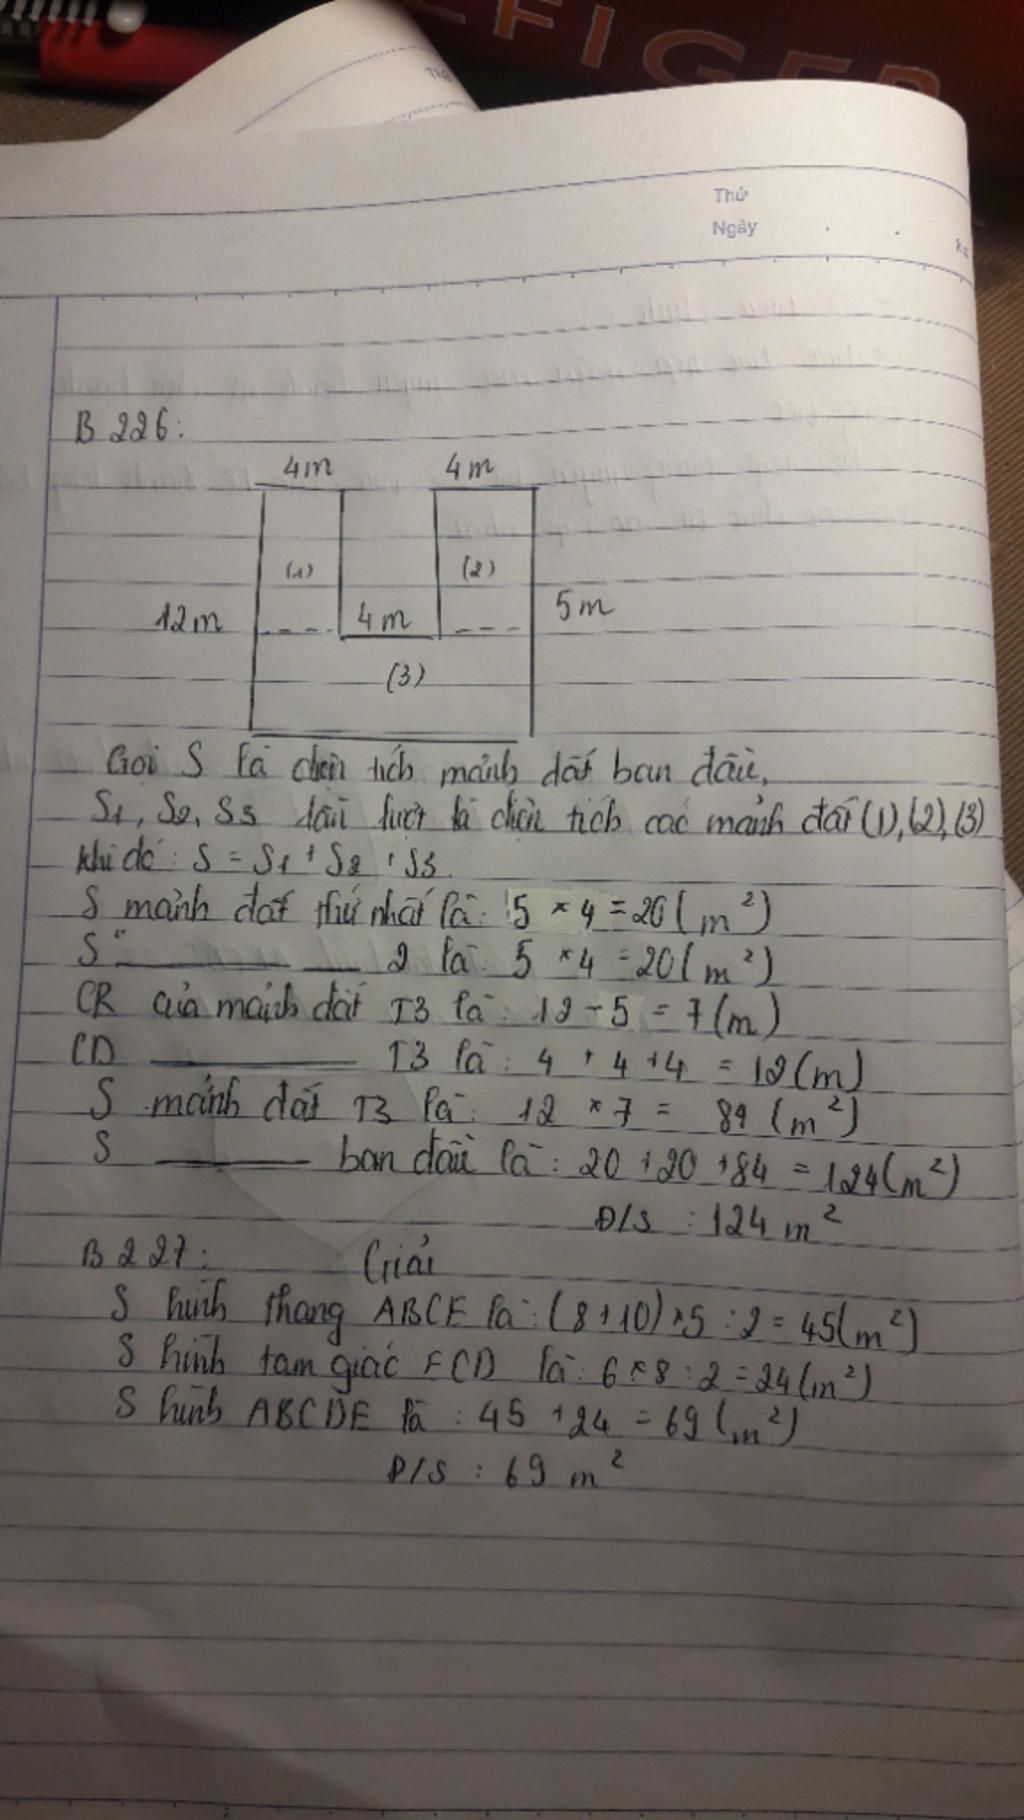 FIGER
Thứ
Thứ
Ngày
B 226:
4m 4m
(1) (2)
12m 4m 5m
(3)
Gọi S là diện tích mảnh đất ban đầu,
S1, S2, S3 lần lượt là diện tích các mảnh đất (1), (2), (3)
khi đó: S = S1 + S2 + S3.
S mảnh đất thứ nhất là: 5 × 4 = 20 (m²)
S " 2 là: 5 × 4 = 20 (m²)
CR của mảnh đất T3 là: 12 - 5 = 7 (m)
CD T3 là: 4 + 4 + 4 = 12 (m)
S mảnh đất T3 là: 12 × 7 = 84 (m²)
S ban đầu là: 20 + 20 + 84 = 124 (m²)
Đ/S : 124 m²
B 227: Giải
S hình thang ABCE là: (8 + 10) × 5 : 2 = 45 (m²)
S hình tam giác ECD là: 6 × 8 : 2 = 24 (m²)
S hình ABCDE là: 45 + 24 = 69 (m²)
Đ/S : 69 m²